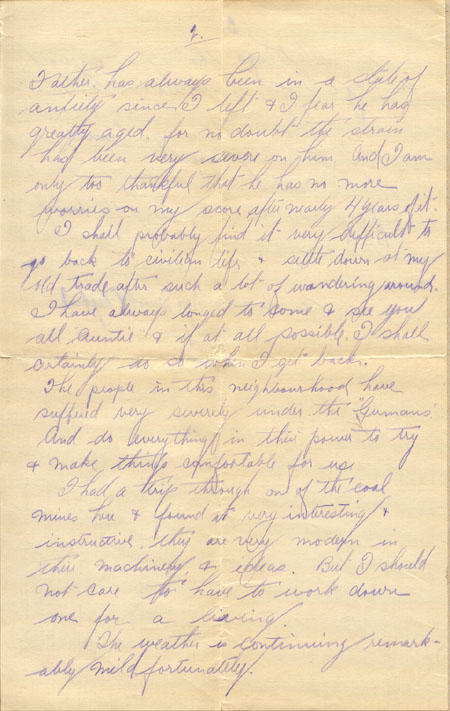 2.
Father has always been in a state of
anxiety since I left & I fear he has
greatly aged. for no doubt the strain
had been very severe on him And I am
only too thankful that he has no more
worries on my score after nearly 4 years of it.
I shall probably find it very difficult to
go back to civilian life & settle down at my
old trade after such a lot of wandering around.
I have always longed to come & see you
all Auntie & if at all possible I shall
certainly do so when I get back.
The people in this neighbourhood have
suffered very severely under the "Germans.
And do everything in their power to try
& make things comfortable for us
I had a trip through one of the coal
mines here & found it very interesting &
instructive. they are very modern in
their machinery & ideas. But I should
not care to have to work down
one for a living.
The weather is continuing remark-
ably mild fortunately.